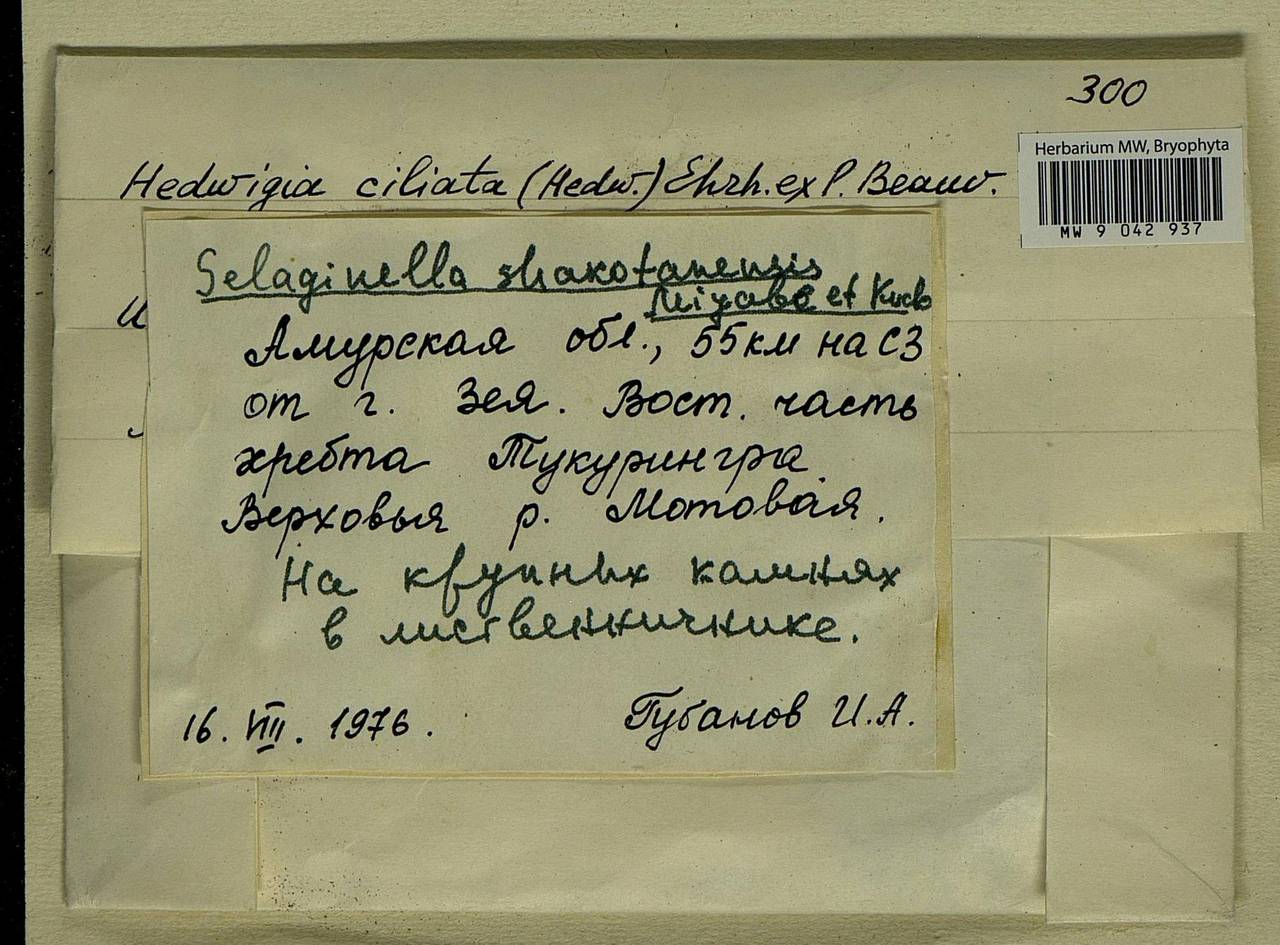 300
Herbarium MW, Bryophyta
MW 9 042 937
Hedwigia ciliata (Hedw.) Ehrh. ex P. Beauv.
Selaginella shakotanensis
Miyabe et Kudo
Амурская обл., 55 км на СЗ
от г. Зея. Вост. часть
хребта Тукурингра
Верховья р. Мотовая.
На крупных камнях
в лиственничнике.
16. VIII. 1976.
Губанов И.А.